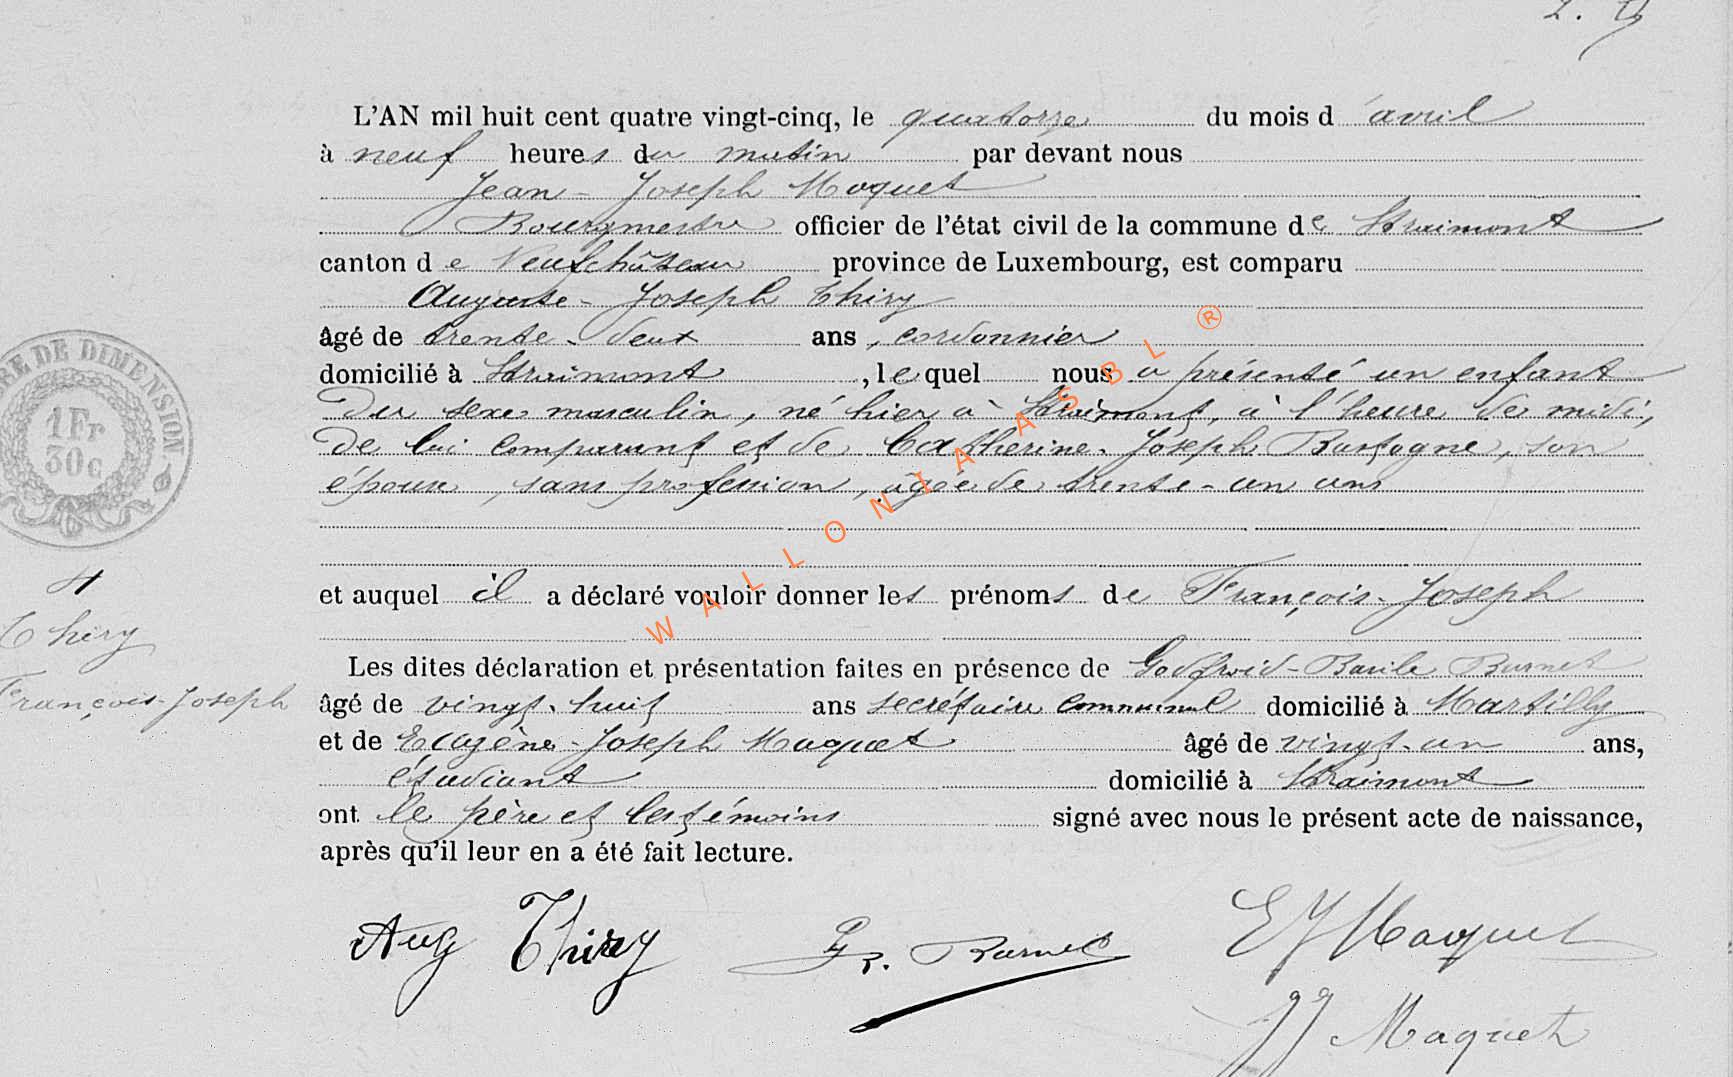 L'AN mil huit cent quatre vingt-cinq, le quatorze du mois d'avril
à neuf heures du matin par devant nous
Jean-Joseph Maquet
Bourgmestre officier de l'état civil de la commune de Straimont
canton de Neufchâteau province de Luxembourg, est comparu
Auguste-Joseph Thiry
âgé de trente-deux ans, cordonnier
domicilié à Straimont, lequel nous a présenté un enfant
du sexe masculin, né hier à Straimont, à l'heure de midi,
de lui comparant et de Catherine-Joseph Bastogne, son
épouse, sans profession, âgée de trente-un ans
et auquel il a déclaré vouloir donner les prénoms de François-Joseph
Les dites déclaration et présentation faites en présence de Godfroid-Basile Burnet
âgé de vingt-huit ans secrétaire communal domicilié à Martilly
et de Eugène-Joseph Maquet âgé de vingt-un ans,
étudiant domicilié à Straimont
ont le père et les témoins signé avec nous le présent acte de naissance,
après qu'il leur en a été fait lecture.
Aug Thiry G B. Burnet E J Maquet
J J Maquet
DE DIMENSION
1 Fr
30c
4
Thiry
François-Joseph
WALLONIA ASBL ®